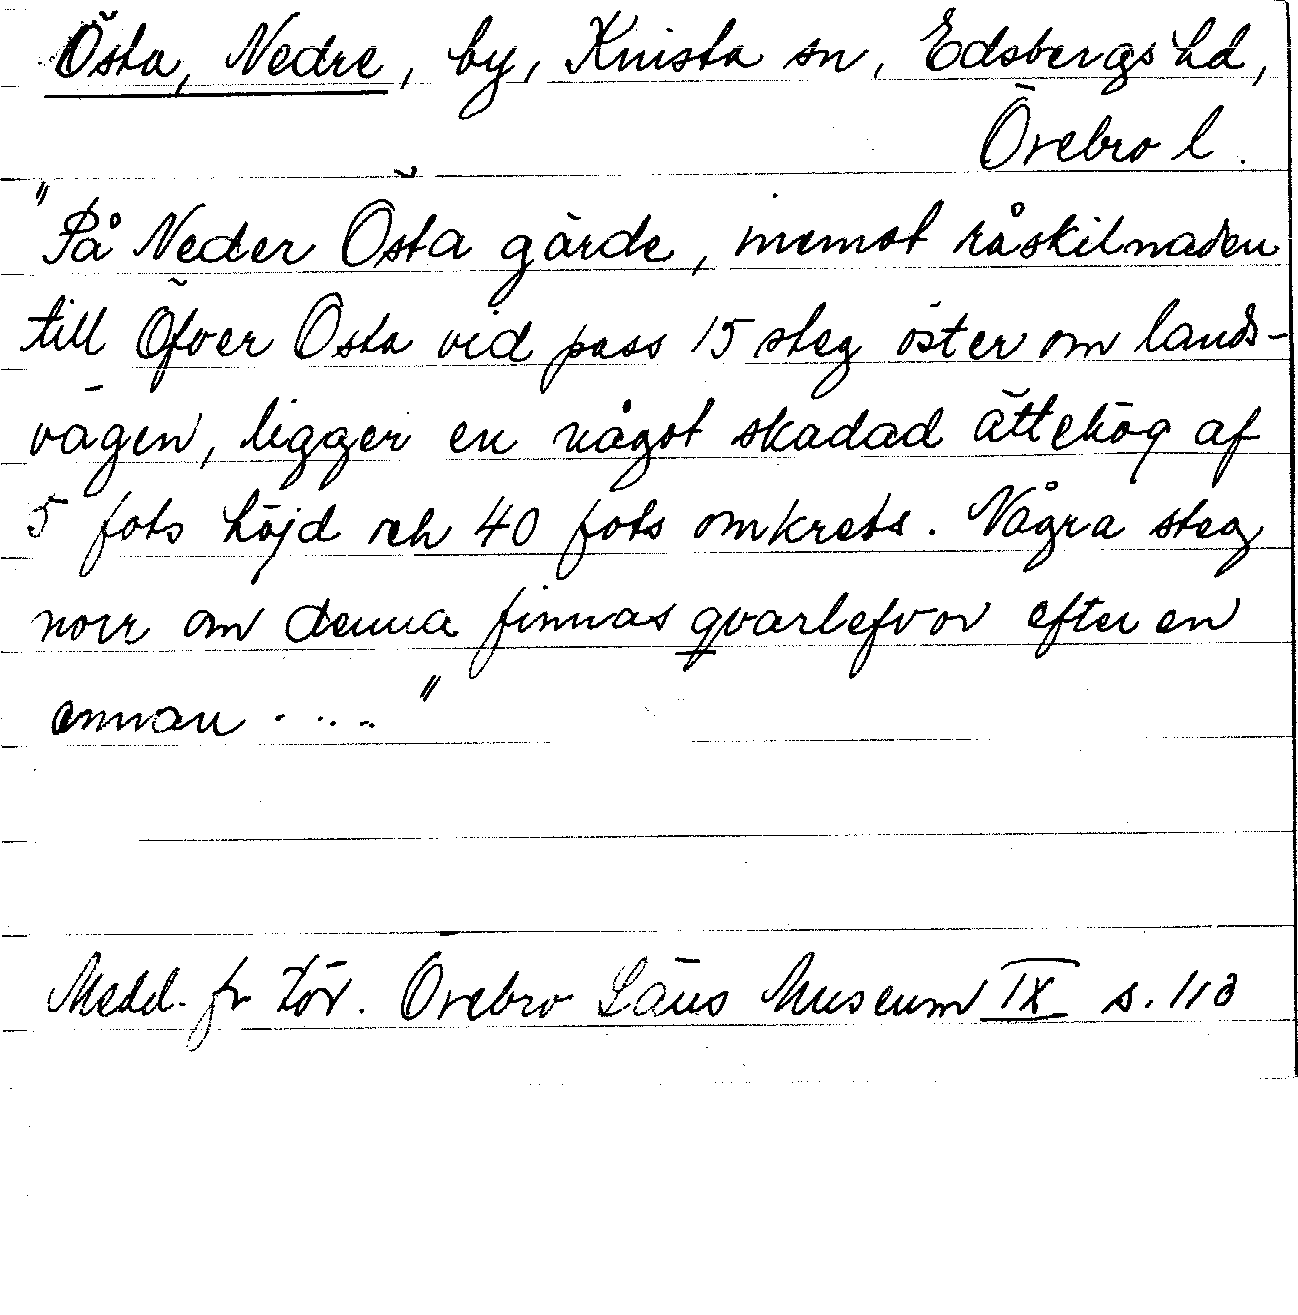 Östa, Nedre, by, Knista sn, Edsbergs hd,
Örebro l.
"På Neder Östa gärde, inemot råskilnaden
till Öfver Östa vid pass 15 steg öster om lands-
vägen, ligger en något skadad ättehög af
5 fots höjd och 40 fots omkrets. Några steg
norr om denna finnas qvarlefvor efter en
annan ...."
Medd. fr för. Örebro Läns Museum IX s. 113